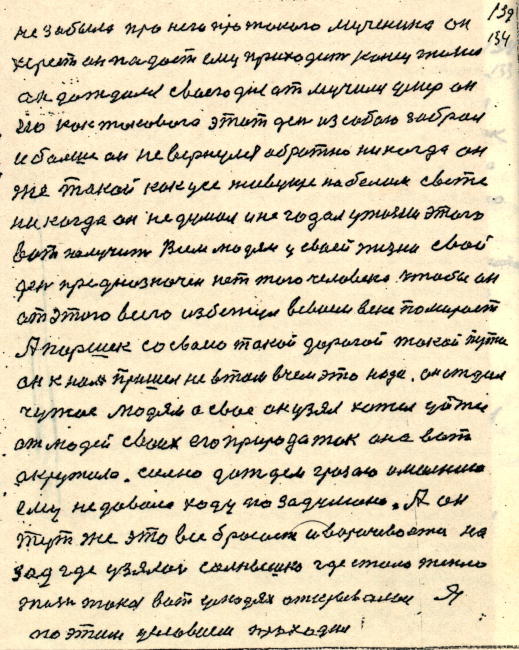 139
не забыла про него про такого мученика он
134
крест он падает ему приходит конец жизни
он дождался своего дня отмучился умер он
его как такового этот ден из собою забрал
и больше он не вернулся обратно никогда он
же такой как усе живущие на белом свете
никогда он не думал и не гадал у жизни этого
вот получит Всем людям у своей жизни свой
ден предназначен нет того человека чтобы он
от этого всего избежал всвоем веке помирает
А паршек со свою такой дорогой такой пути
он к нам пришел не втом вчем это надо. он отдал
чужое людям а свое он узял хотел уйти
от людей своих его природа так она вот
окружила. силно дождем грозою и молнию
ему не давала ходу по задумано. А он
тут же это все бросает и ворачивается на
зад где узялос солнышко где стало тепло
жизн така вот у людях открывалас Я
по этим условием приходил